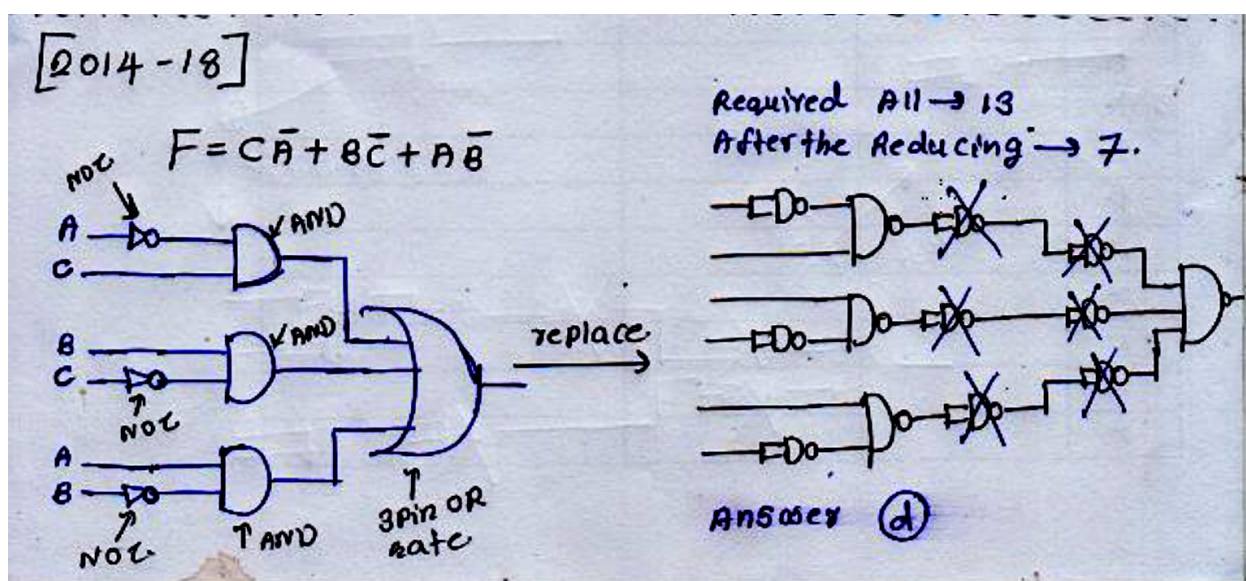 [2014-18]
F = CĀ + BC̄ + AB̄
NOT
A
AND
C
B
AND
C
NOT
A
B
NOT
AND
3pin OR
gate
replace
Required All → 13
After the Reducing → 7.
Answer (d)